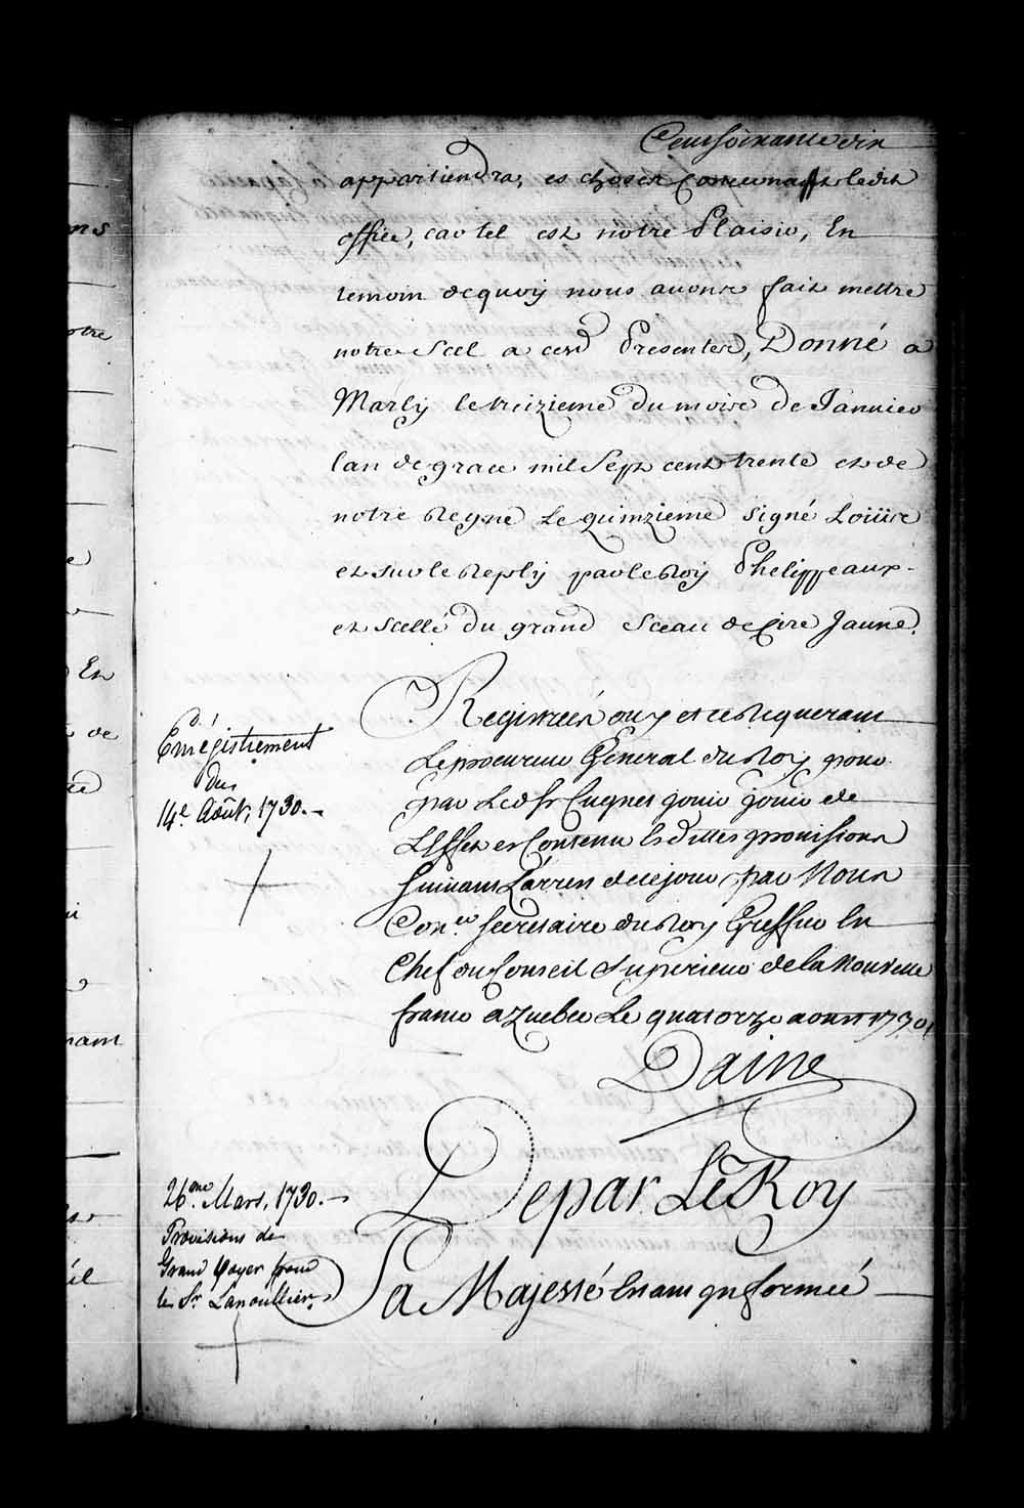 Cent soixante dix
appartiendra, es choses Concernant ledit
office, car tel est notre Plaisir, En
temoin dequoy nous avons fait mettre
notre Scel a cesd Presentes, Donné a
Marly le treizieme du mois de Januier
lan de grace mil Sept cent trente et de
notre Regne Le quinzieme signé Loüis
et sur le Reply par le Roy Phelippeaux -
et scellé du grand Sceau de Cire Jaune.
Enrégistrement
du
14e. Août, 1730. -
Registrées ouy et ce Requerant
Le procureur General du Roy pour
par Led sr Cugnet jouir de
LEffet et Contenu Esdittes provisions
Suivant Larrest de ce jour par Nous
Con.er secretaire du Roy Greffier En
Chef du Conseil Superieur de la Nouvelle
france a Quebec Le quatorze aoust 1730
Daine
26me. Mars, 1730. -
Provisions de
Grand Voyer pour
le Sr. Lanoullier.
De par Le Roy
Sa Majesté Estant Informée